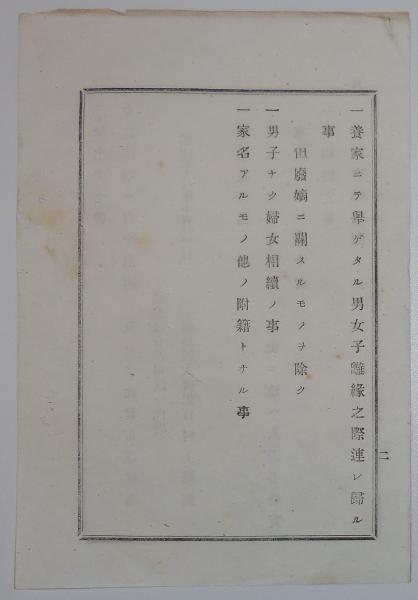 一養家ニテ擧ゲタル男女子離緣之際連レ歸ル
事
但廢嫡ニ關スルモノヲ除ク
一男子ナク婦女相續ノ事
一家名アルモノ他ノ附籍トナル事
二